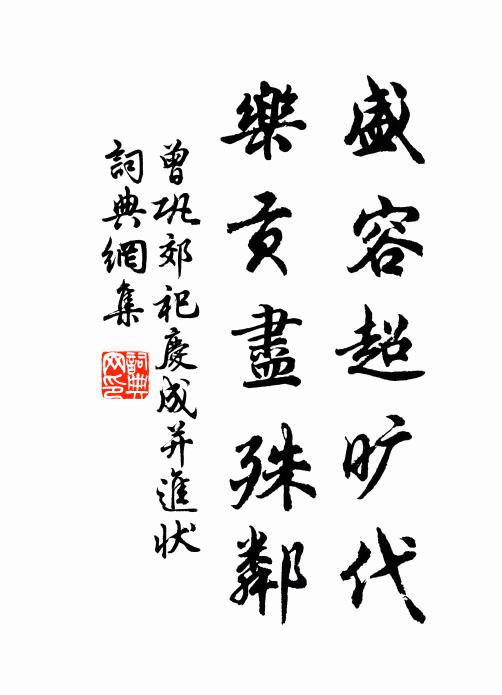 盛容超旷代
樂貢盡殊鄰
曾巩郊祀慶成并進状
詞典網集
詞典网印